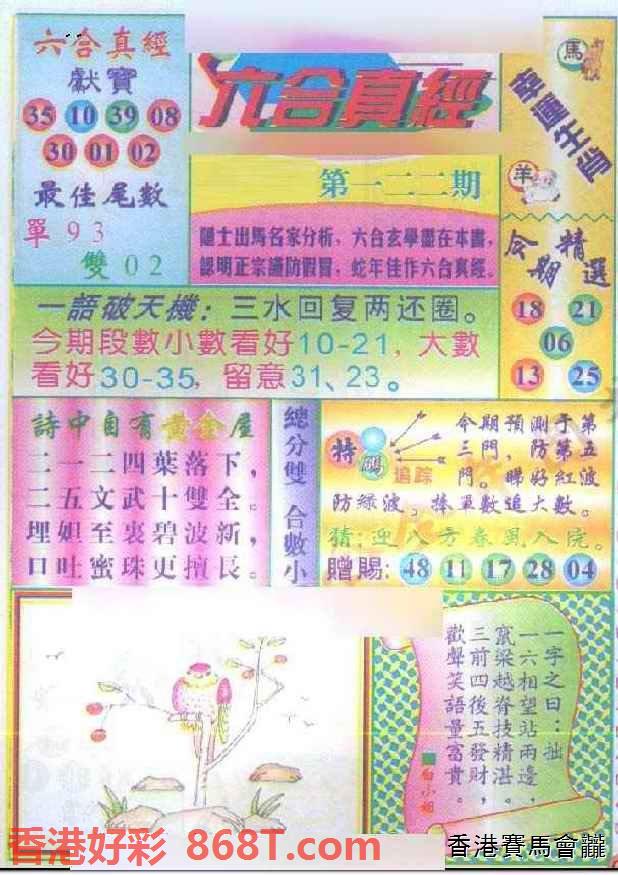 六合真經
獻寶
35 10 39 08
30 01 02
最佳尾數
單 9 3
雙 0 2
六合真經
第一二二期
隱士出馬名家分析，六合玄學盡在本書，
認明正宗謹防假冒，蛇年佳作六合真經。
馬
幸運生肖
羊
今期精選
18 21
06
13 25
一語破天機：三水回复两还圈。
今期段數小數看好10-21，大數
看好30-35，留意31、23。
詩中自有黄金屋
二一二四葉落下，
二五文武十雙全。
埋妲至裏碧波新，
口吐蜜珠更擅長。
總分雙 合數小
特碼
追踪
今期預測于第
三門，防第五
門。睇好紅波
防綠波，捧單數追大數。
猜：迎八方春風入院。
贈賜：48 11 17 28 04
一字之曰：拙
一六相望站兩邊，
竄梁越脊技精湛。
三前四後五發財，
歡聲笑語量富貴。
白小姐
香港好彩 868T.com
香港賽馬會